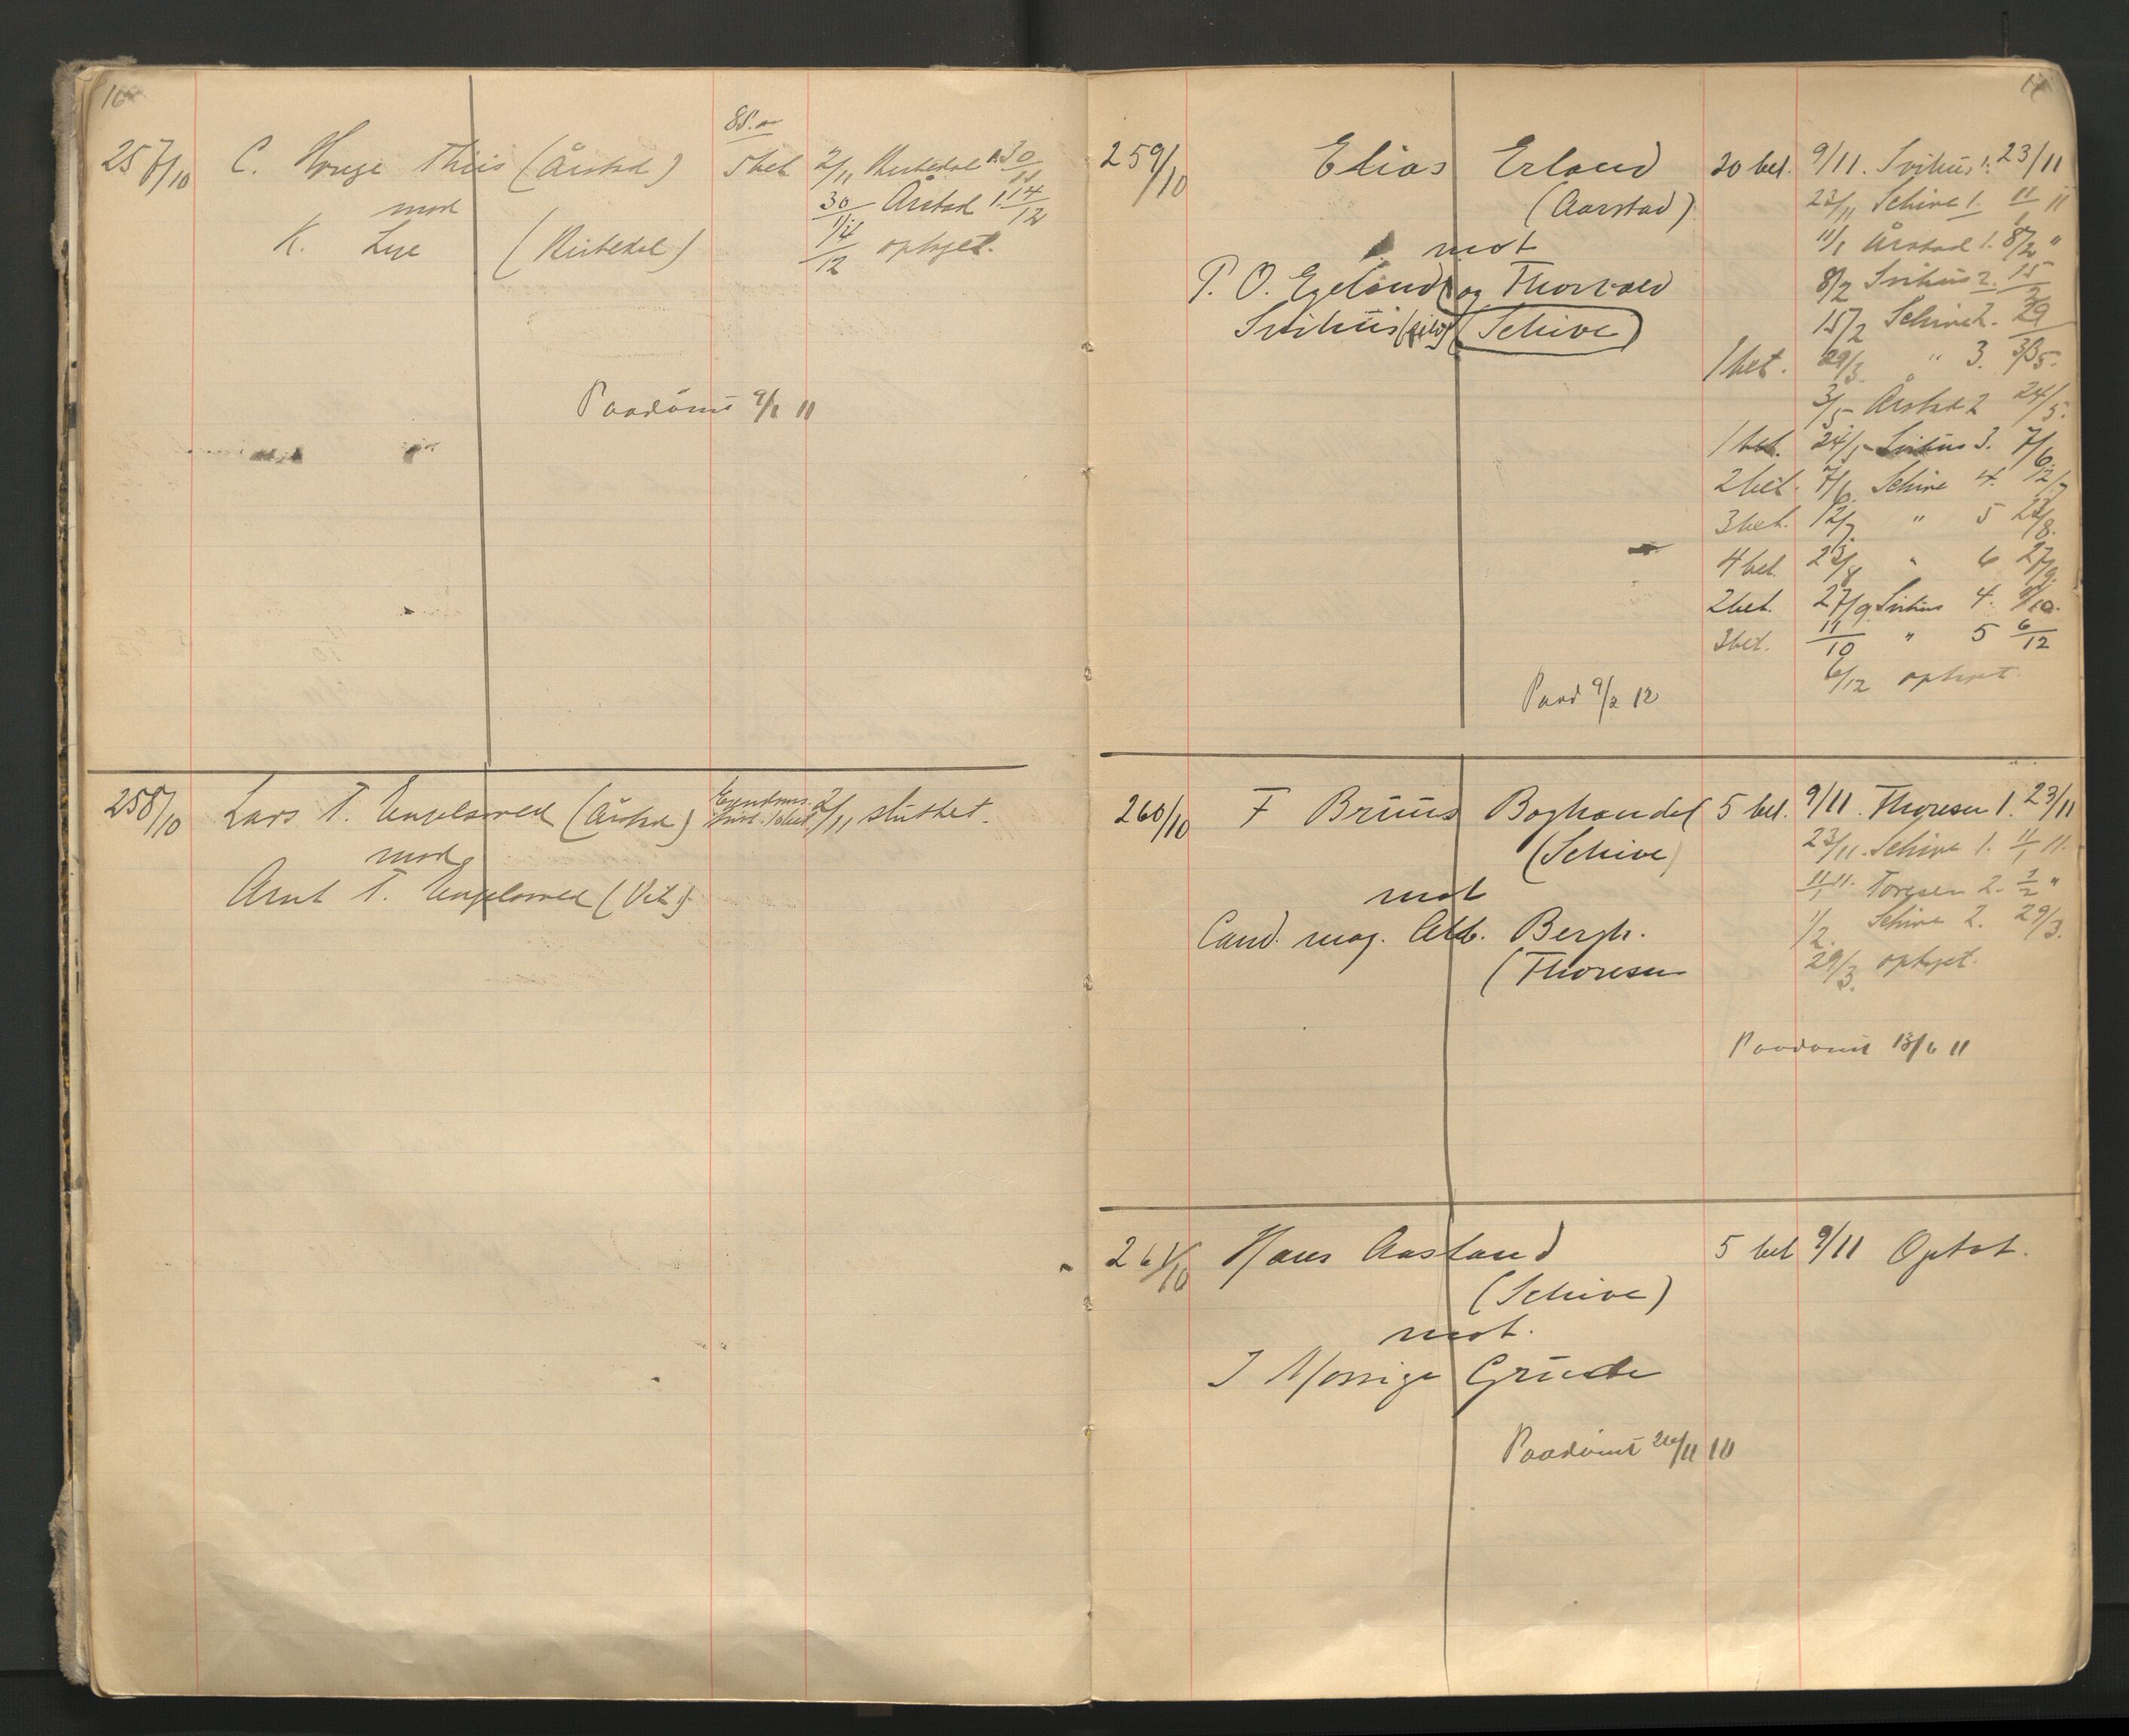 16
85.00
257/10 C. Houge Thiis (Årstad) 5 bet 2/11 Kirkedal 1. 30/11
mod 30/11 Årstad 1. 14/12
K. Lye (Kirkedal) 14/12 optaget.
Paadömt 9/1 11
258/10 Lars T. (Årstad) Eiendoms 2/11 sluttet.
mod
Arnt T.
17
259/10 Elias Erland 20 bet. 9/11. Svihus 1. 23/11
(Aarstad) 23/11 Schive 1. 11/1 11
mot 11/1 Årstad 1. 8/2 "
P. O. Egeland og Thorvald 8/2 Svihus 2. 15/2
Svihus (Schive) 15/2 Schive 2. 29
1 bet. 29/3. " 3. 3/5.
3/5 Årstad 2 24/5.
1 bet. 24/5 Svihus 3. 7/6.
2 bet. 7/6. Schive 4. 12/7
3 bet. 12/7. " 5 23/8.
4 bet. 23/8 " 6 27/9.
2 bet. 27/9 Svihus 4. 11/10.
3 bet. 11/10 " 5 6/12
6/12 optat.
Paad 9/2 12
260/10 F Bruns Boghandel 5 bet. 9/11. Thoresen 1. 23/11
(Schive) 23/11. Schive 1. 11/1 11.
mot 11/1 11. Toresen 2. 1/2 "
Cand. mag. Alb. Bergh. 1/2. Schive 2. 29/3.
(Thoresen 29/3. optaget.
Paadömt 13/6 11
261/10 Hans Aasland 5 bet 9/11 Optat.
(Schive)
mot.
J Mossige Grude
Paadömt 26/11 10